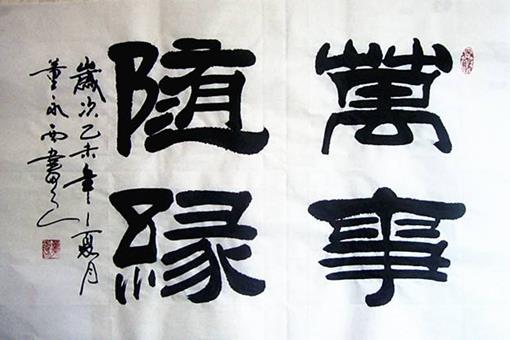 萬事
随緣
歲次乙未年夏月
董永西書之